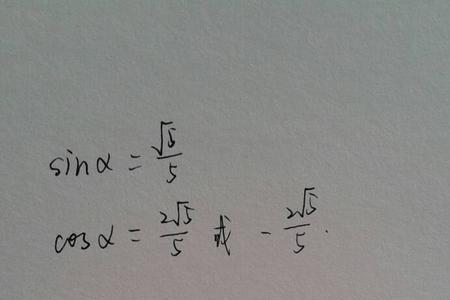 sinα = √5/5
cosα = 2√5/5 或 - 2√5/5.